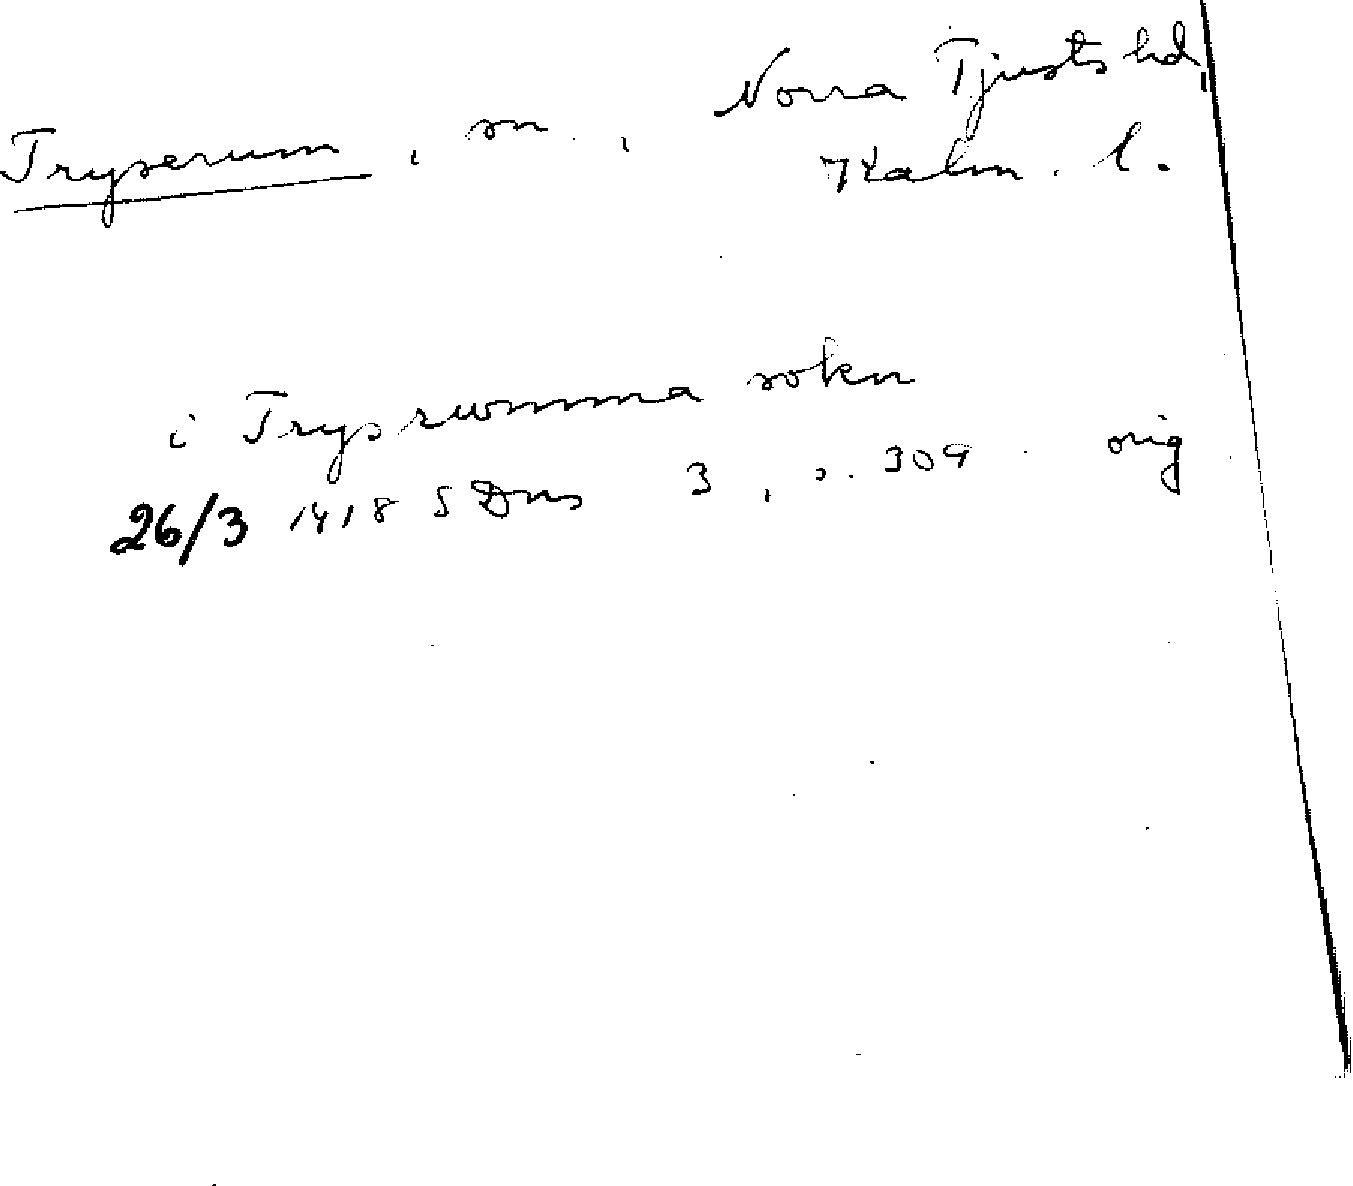 Tryserum, sn., Norra Tjusts hd,
Kalm. l.
i Trysrumma sokn
26/3 1418 SDns 3, s. 309 orig